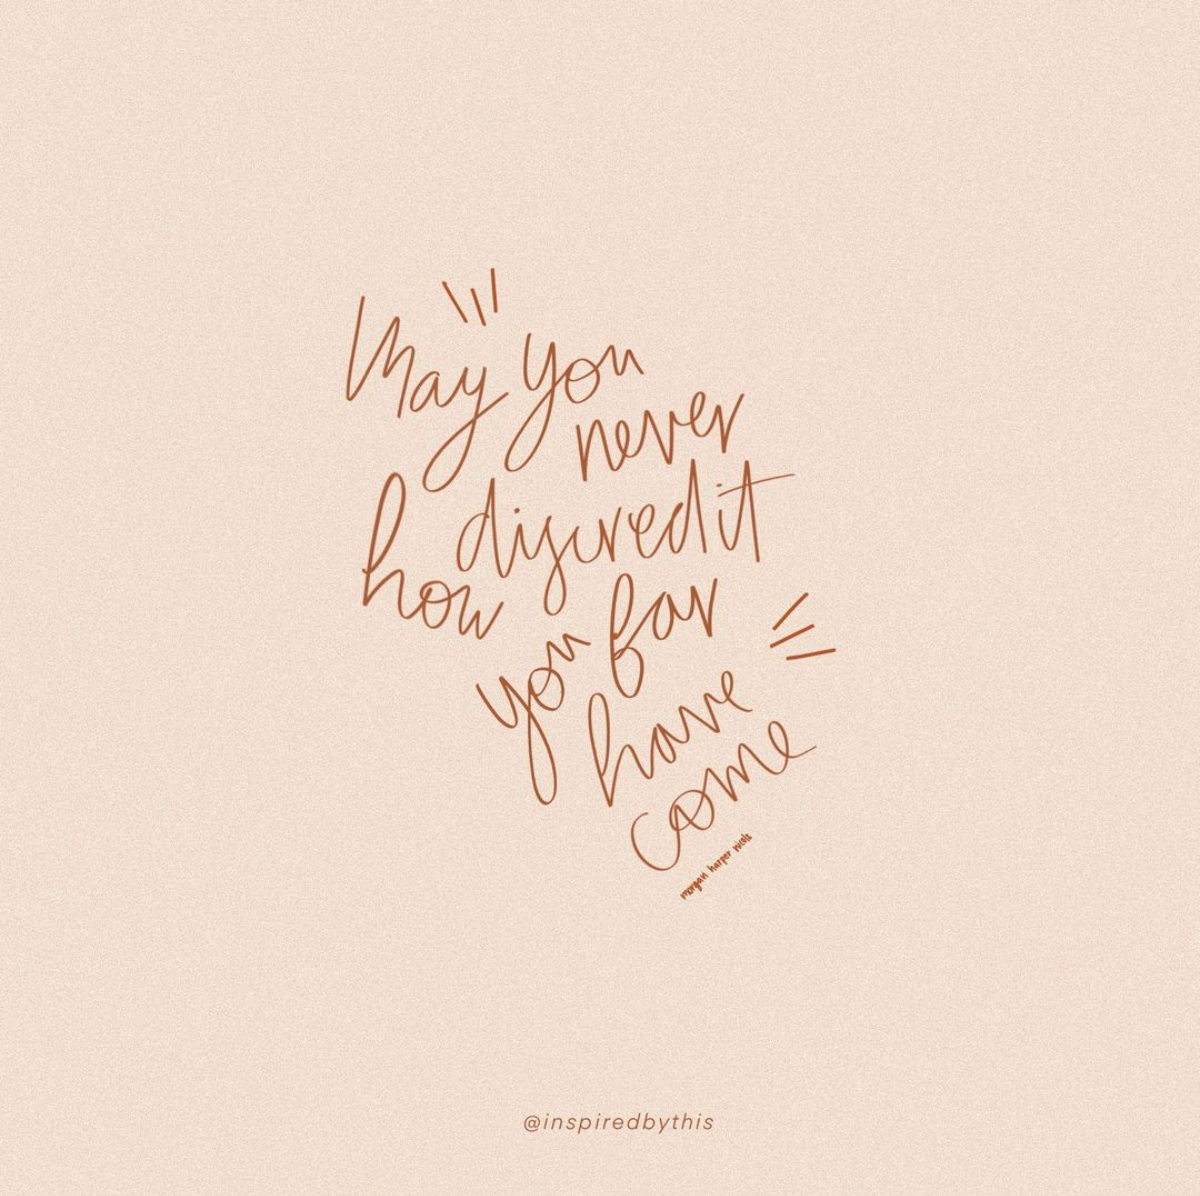 May you
never
discredit
how far
you have
come
morgan harper nicols
@inspiredbythis